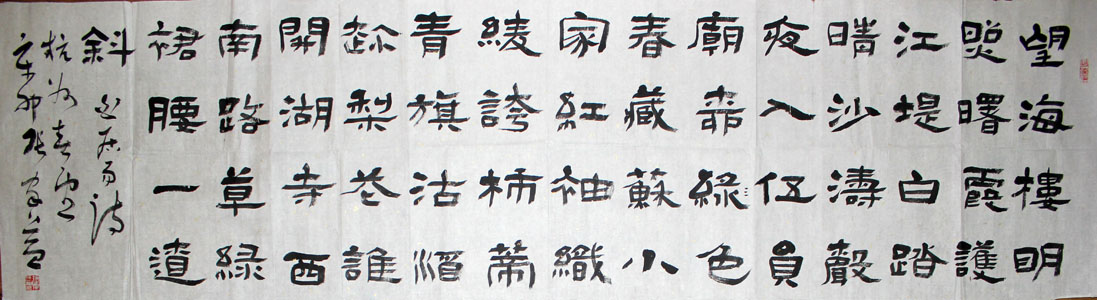 望海樓明
照曙霞護
江堤白踏
晴沙濤聲
夜入伍員
廟綠色
春藏蘇小
家紅袖織
綾誇柿蒂
青旗沽酒
趁梨花誰
開湖寺西
南路草綠
裙腰一道
斜 白居易詩
杭州春望
辛卯張